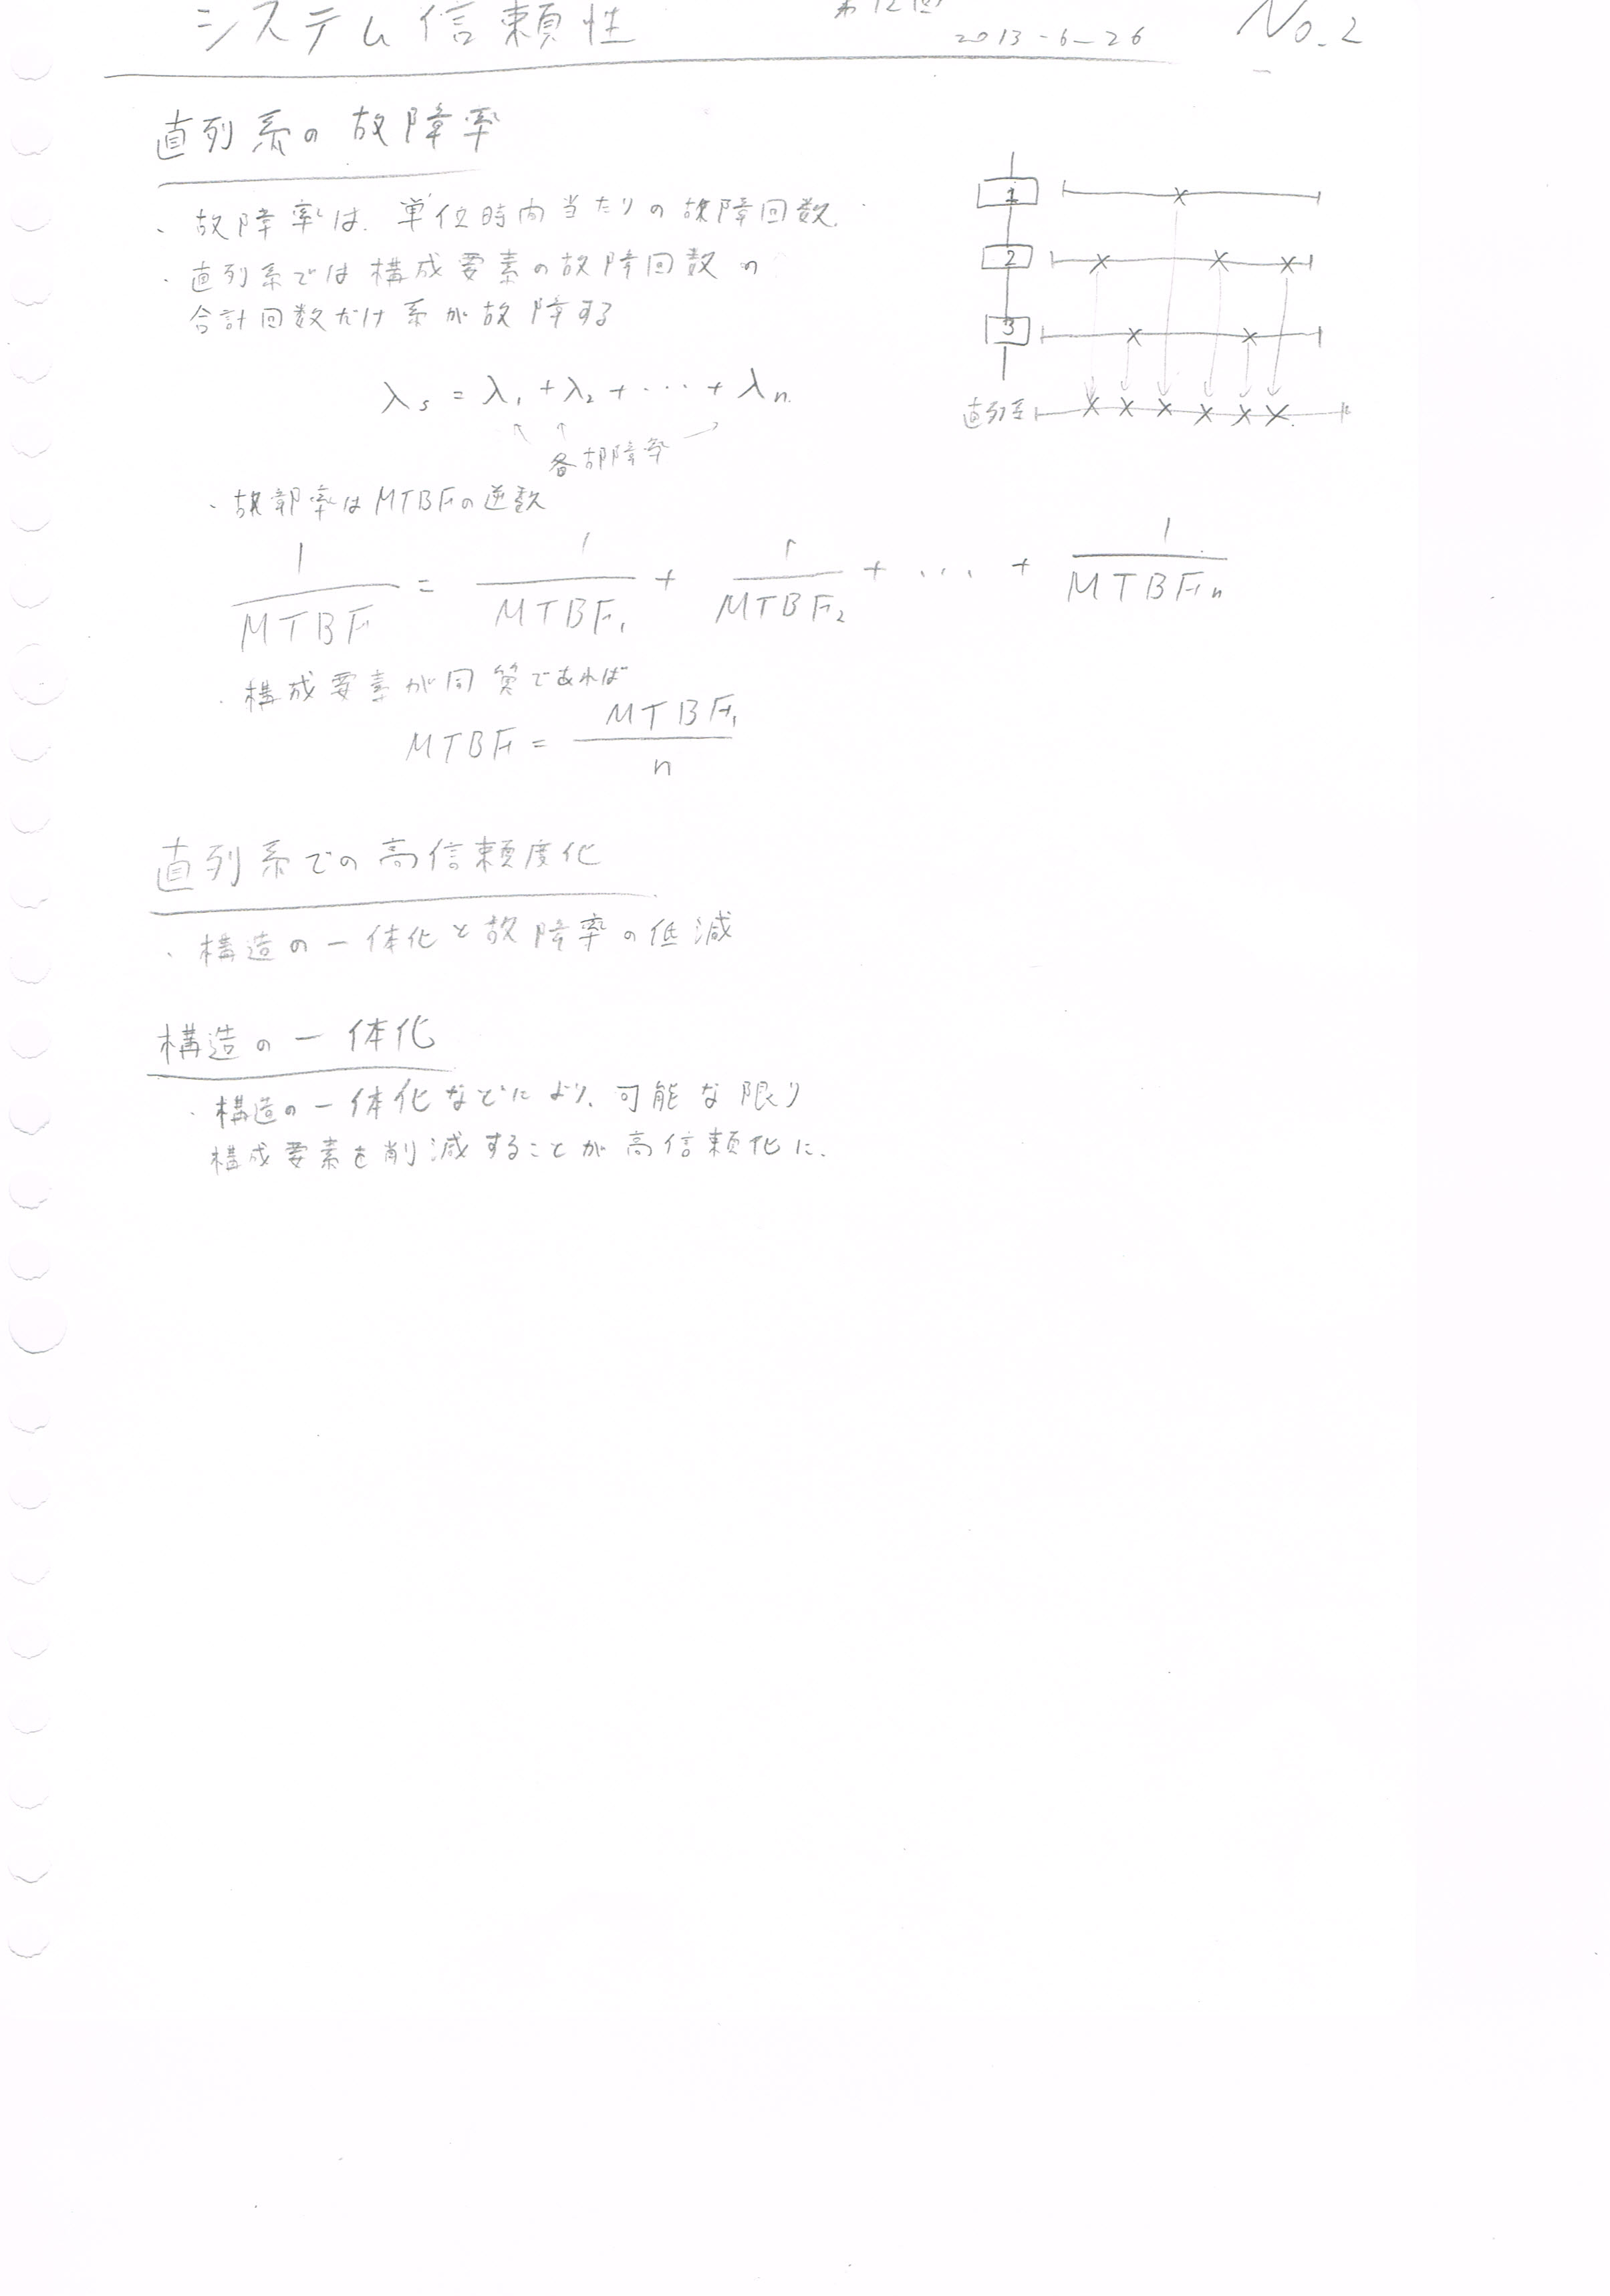 システム信頼性 第12回 No.2
2013-6-26
直列系の故障率
・故障率は、単位時間当たりの故障回数.
・直列系では構成要素の故障回数の
合計回数だけ系が故障する
λs = λ1 + λ2 + ・・・ + λn
各故障率
・故障率はMTBFの逆数
1/MTBF = 1/MTBF1 + 1/MTBF2 + ... + 1/MTBFn
・構成要素が同質であれば
MTBF = MTBF1/n
1
2
3
直列系
直列系での高信頼度化
・構造の一体化と故障率の低減
構造の一体化
・構造の一体化などにより、可能な限り
構成要素を削減することが高信頼化に.